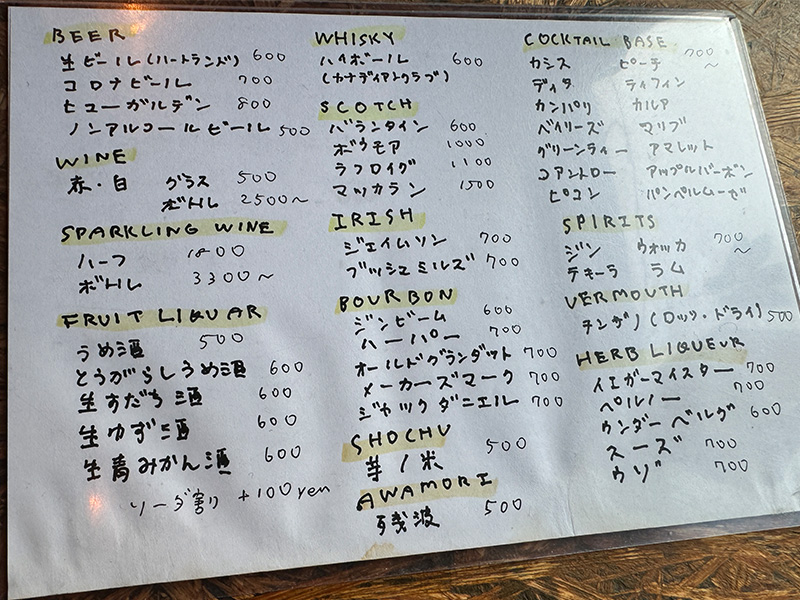 BEER
生ビール(ハートランド) 600
コロナビール 700
ヒューガルデン 800
ノンアルコールビール 500
WINE
赤・白 グラス 500
ボトル 2500〜
SPARKLING WINE
ハーフ 1800
ボトル 3300〜
FRUIT LIQUAR
うめ酒 500
とうがらしうめ酒 600
生すだち酒 600
生ゆず酒 600
生青みかん酒 600
ソーダ割り +100yen
WHISKY
ハイボール 600
(カナディアンクラブ)
SCOTCH
バランタイン 600
ボウモア 1000
ラフロイグ 1100
マッカラン 1500
IRISH
ジェイムソン 700
ブッシュミルズ 700
BOURBON
ジンビーム 600
ハーパー 700
オールドグランダット 700
メーカーズマーク 700
ジャックダニエル 700
SHOCHU
芋/米 500
AWAMORI
残波 500
COCKTAIL BASE
カシス ピーチ 700〜
ディタ ティフィン
カンパリ カルア
ベイリーズ マリブ
グリーンティー アマレット
コアントロー アップルバーボン
ピコン パンペルムーゼ
SPIRITS
ジン ウォッカ 700〜
テキーラ ラム
VERMOUTH
チンザノ(ロッソ・ドライ) 500
HERB LIQUEUR
イエガーマイスター 700
ペルノー 700
ウンダーベルグ 600
スーズ 700
ウゾ 700